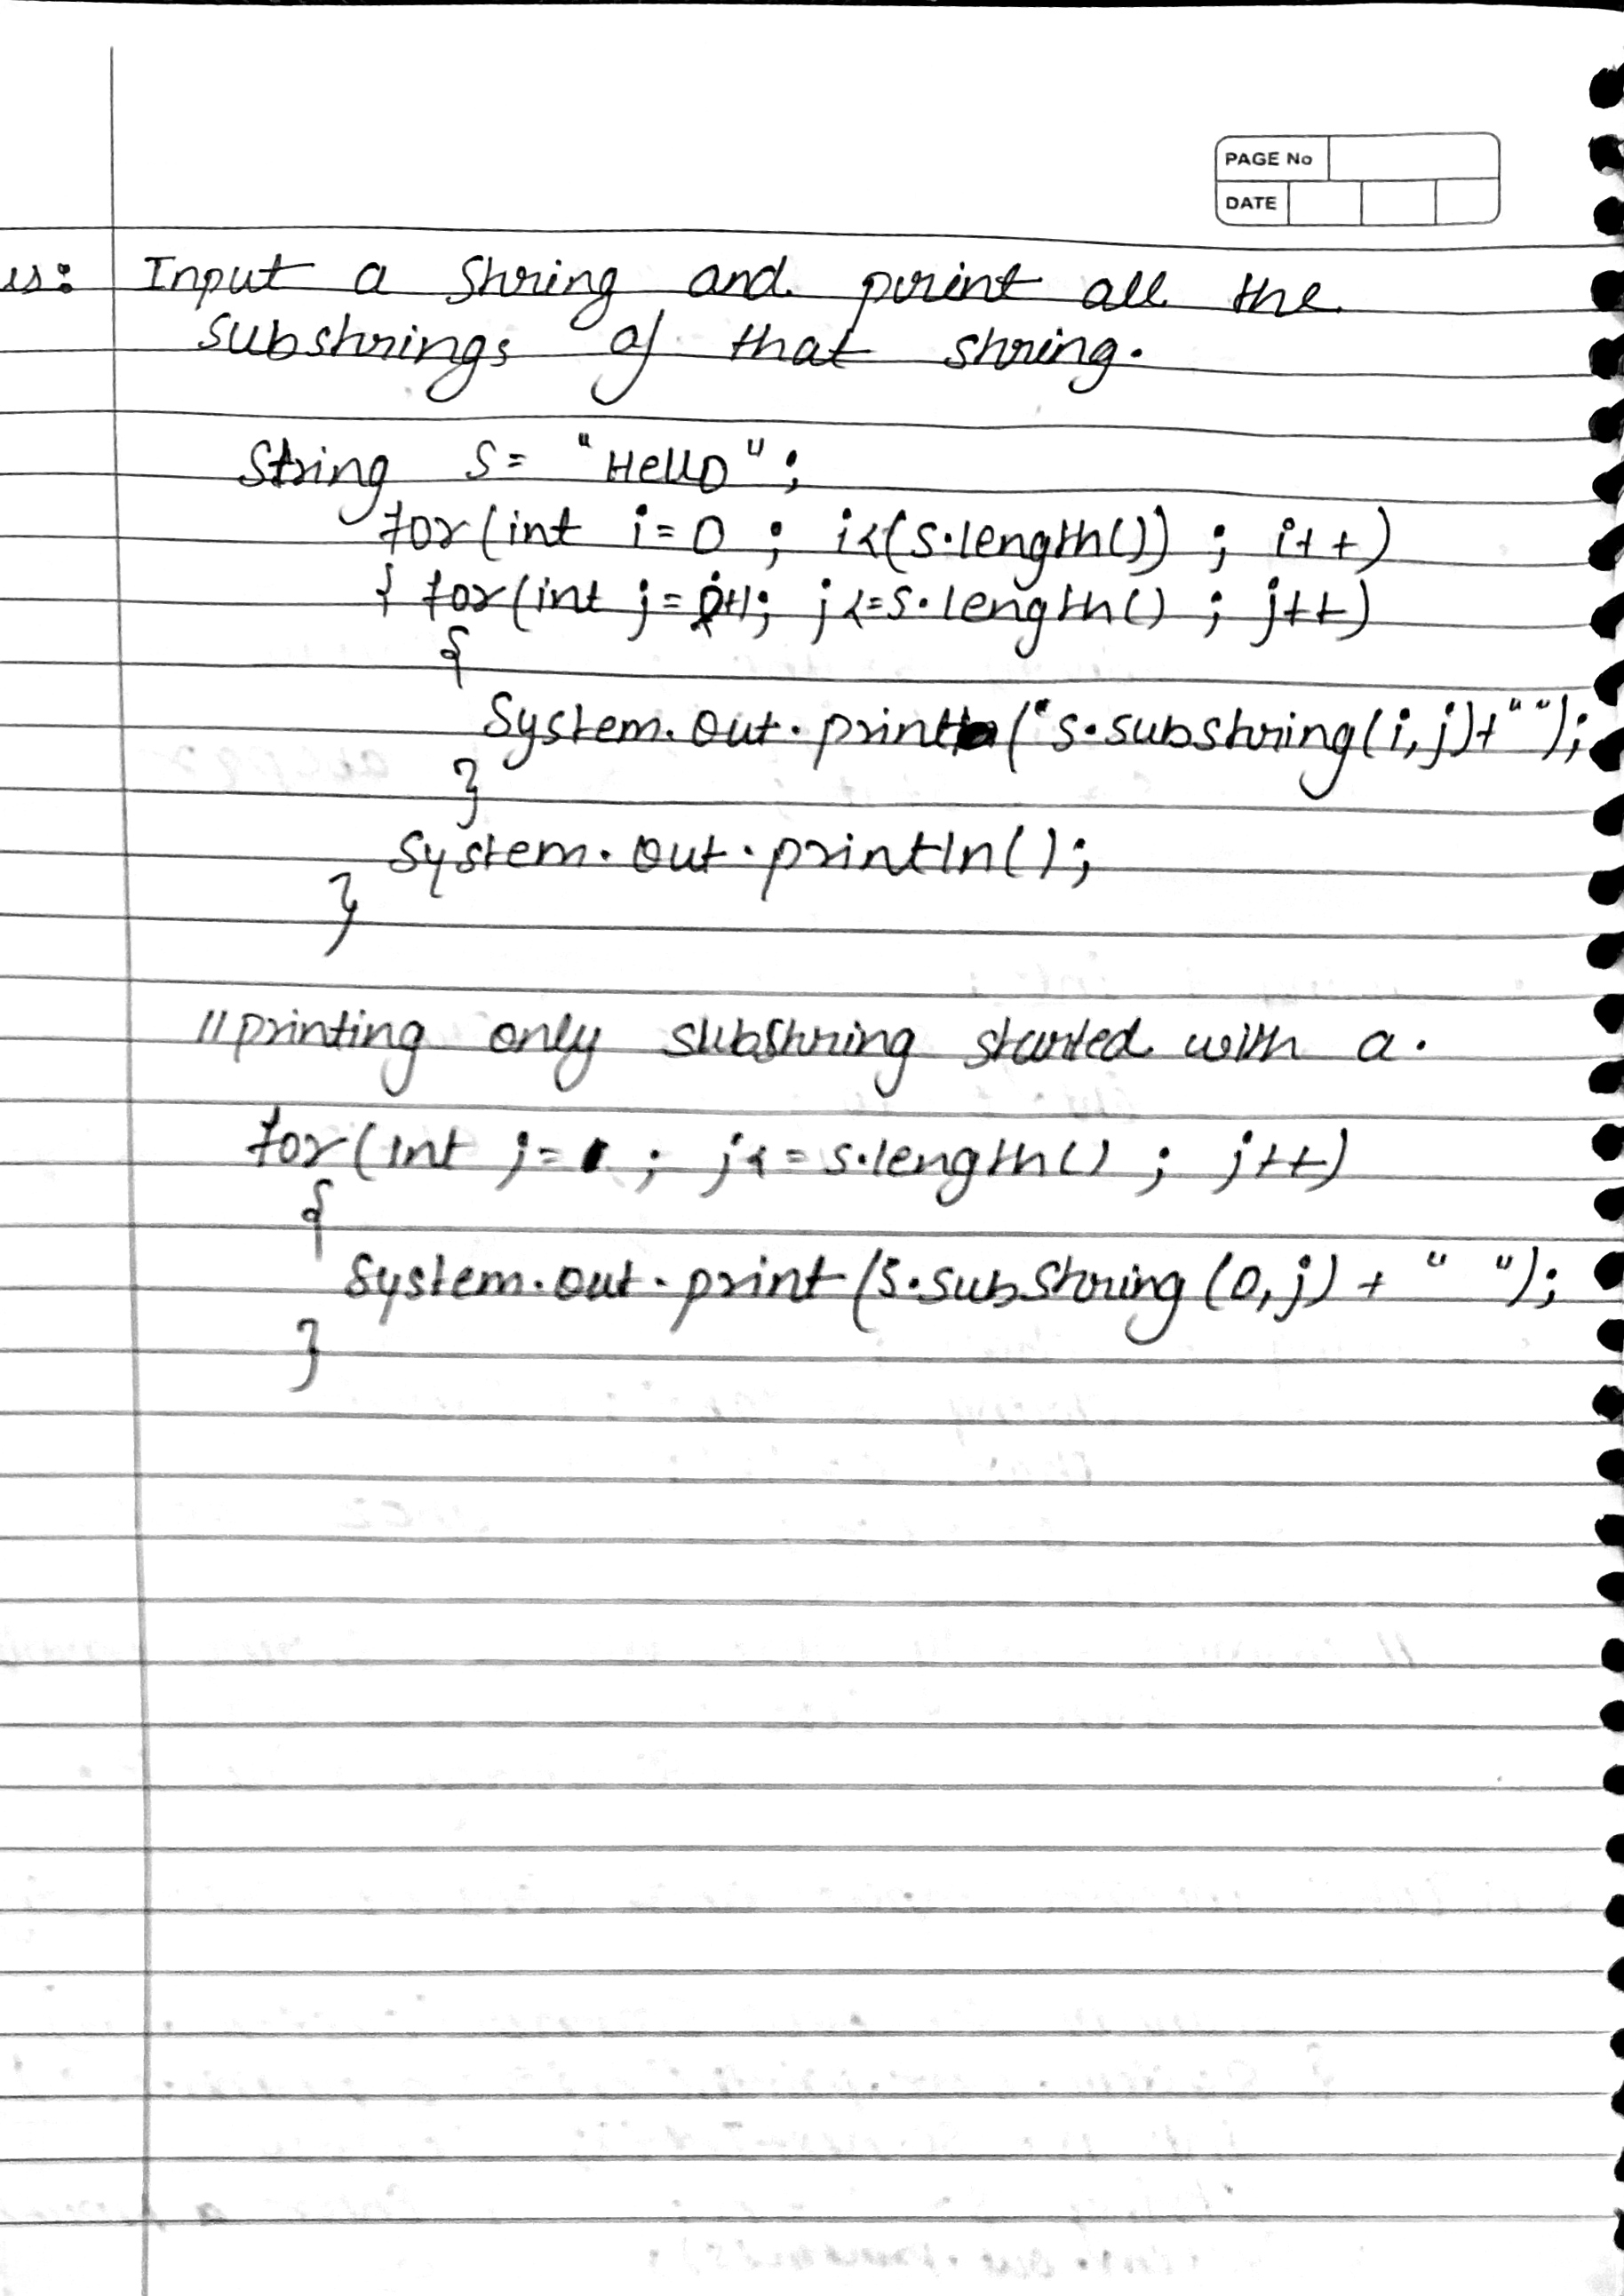 PAGE No
DATE
us: Input a string and print all the
substrings of that string.
String s = "Hello";
for(int i=0 ; i<(s.length()) ; i++)
{ for(int j=i+1; j<=s.length() ; j++)
{
System.out.print("s.substring(i,j)+" ");
}
System.out.println();
}
//printing only substring started with a.
for(int j=1 ; j<=s.length() ; j++)
{
System.out.print(s.substring(0,j) + " ");
}